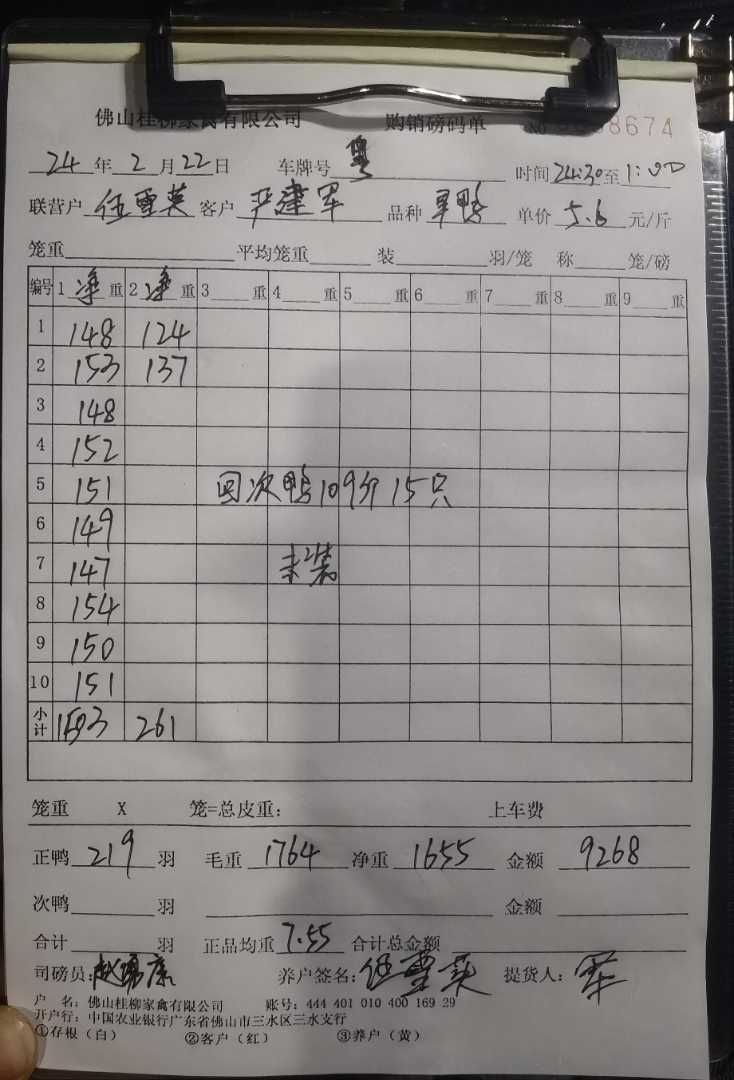 佛山桂柳家禽有限公司 购销磅码单 No 8674
24 年 2 月 22 日 车牌号 粤 时间 24:30 至 1:00
联营户 伍雪英 客户 严建军 品种 鸭 单价 5.6 元/斤
笼重 平均笼重 装 羽/笼 称 笼/磅
编号 1 净 重 2 净 重 3 重 4 重 5 重 6 重 7 重 8 重 9 重
1 148 124
2 153 137
3 148
4 152
5 151 回次鸭109斤15只
6 149
7 147 未装
8 154
9 150
10 151
小计 1503 261
笼重 X 笼=总皮重: 上车费
正鸭 219 羽 毛重 1764 净重 1655 金额 9268
次鸭 羽 金额
合计 羽 正品均重 7.55 合计总金额
司磅员: 养户签名: 伍雪英 提货人: 军
户 名: 佛山桂柳家禽有限公司 账号: 444 401 010 400 169 29
开户行: 中国农业银行广东省佛山市三水区三水支行
①存根（白） ②客户（红） ③养户（黄）